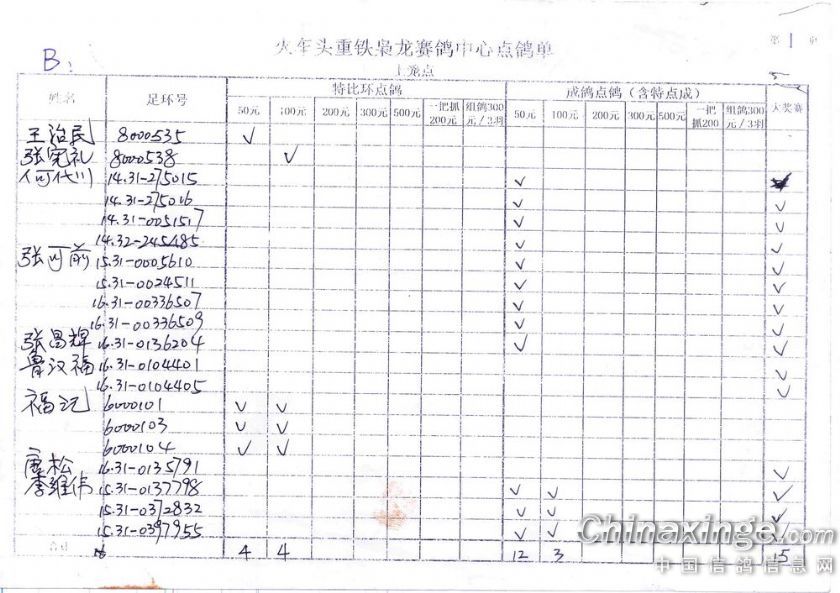 火车头重铁枭龙赛鸽中心点鸽单
第 1 页
B:
上笼点
姓名 足环号 特比环点鸽 成鸽点鸽（含特点成） 大奖赛
50元 100元 200元 300元 500元 一把抓200元 组鸽300元/3羽 50元 100元 200元 300元 500元 一把抓200 组鸽300元/3羽
王治民 8000535 ✓
张宪礼 8000538 ✓
何代川 14.31-275015 ✓
14.31-275016 ✓ ✓
14.31-0051517 ✓ ✓
14.32-245485 ✓ ✓
张可前 15.31-0005610 ✓ ✓
15.31-0024511 ✓ ✓
16.31-00336507 ✓ ✓
16.31-00336509 ✓ ✓
张昌辉 16.31-0136204 ✓ ✓
鲁汉福 16.31-0104401 ✓
16.31-0104405 ✓
福记 6000101 ✓ ✓
6000103 ✓ ✓
6000104 ✓ ✓
唐松 16.31-0135791 ✓
李维伟 15.31-0137798 ✓ ✓ ✓
15.31-0372832 ✓ ✓ ✓
15.31-0397955 ✓ ✓ ✓
合计 4 4 12 3 15
Chinaxinge.com
中国信鸽信息网